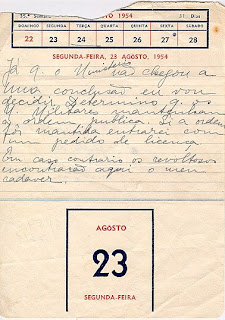 35.ª Semana AGOSTO, 1954 31 Dias
DOMINGO SEGUNDA TERÇA QUARTA QUINTA SEXTA SABADO
22 23 24 25 26 27 28
SEGUNDA-FEIRA, 23 AGOSTO, 1954
Já q. o Ministério não chegou a
uma conclusão eu vou
decidir. Determino q. os
M. Militares mantenham
a ordem publica. Si a ordem
for mantida entrarei com
um pedido de licença.
Em caso contrario os revoltosos
encontrarão aqui o meu
cadaver.
AGOSTO
23
SEGUNDA-FEIRA